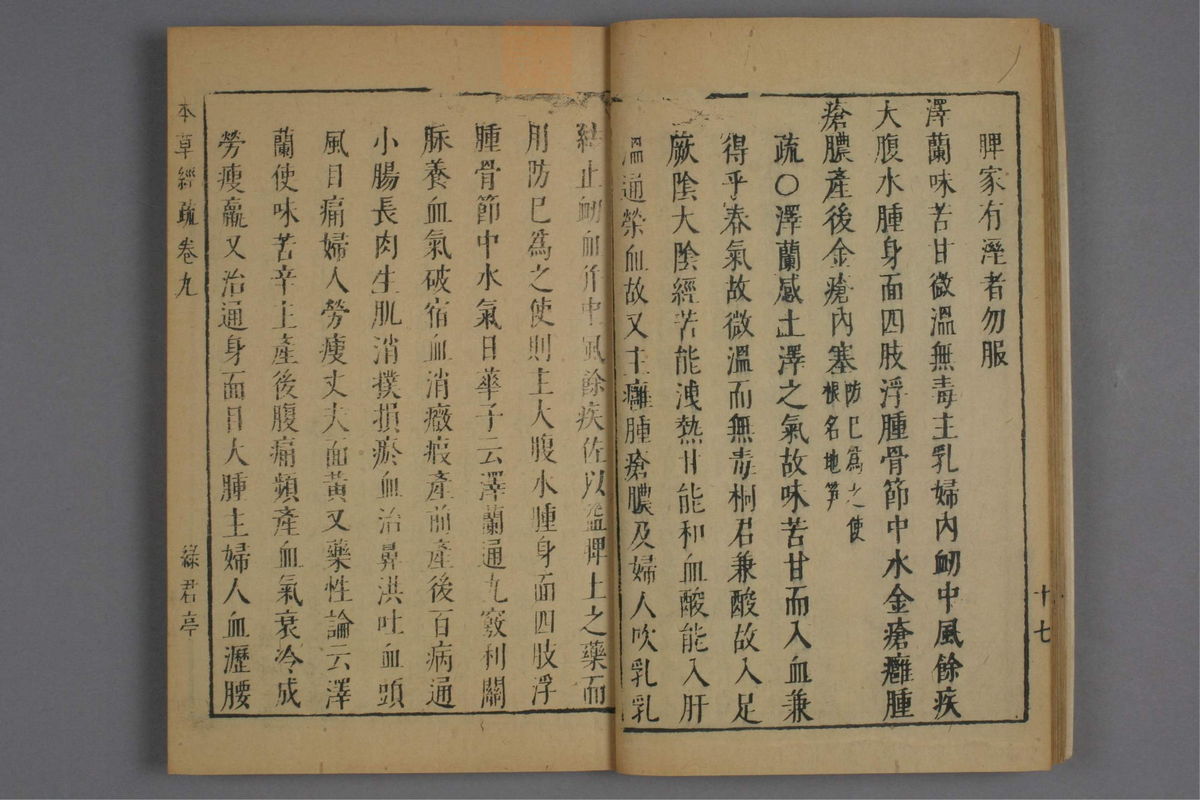 十七
脾家有溼者勿服
澤蘭味苦甘微溫無毒主乳婦內衂中風餘疾
大腹水腫身面四肢浮腫骨節中水金瘡癰腫
瘡膿產後金瘡內塞防巳爲之使根名地笋
疏○澤蘭感土澤之氣故味苦甘而入血兼
得乎春氣故微溫而無毒桐君兼酸故入足
厥陰太陰經苦能洩熱甘能和血酸能入肝
溫通榮血故又主癰腫瘡膿及婦人吹乳乳
結止衂血并中風餘疾佐以益脾土之藥而
用防巳爲之使則主大腹水腫身面四肢浮
腫骨節中水氣日華子云澤蘭通九竅利關
脉養血氣破宿血消癥瘕產前產後百病通
小腸長肉生肌消撲損瘀血治鼻洪吐血頭
風目痛婦人勞瘦丈夫面黃又藥性論云澤
蘭使味苦辛主產後腹痛頻產血氣衰冷成
勞瘦羸又治通身面目大腫主婦人血瀝腰
本草經疏卷九
綠君亭